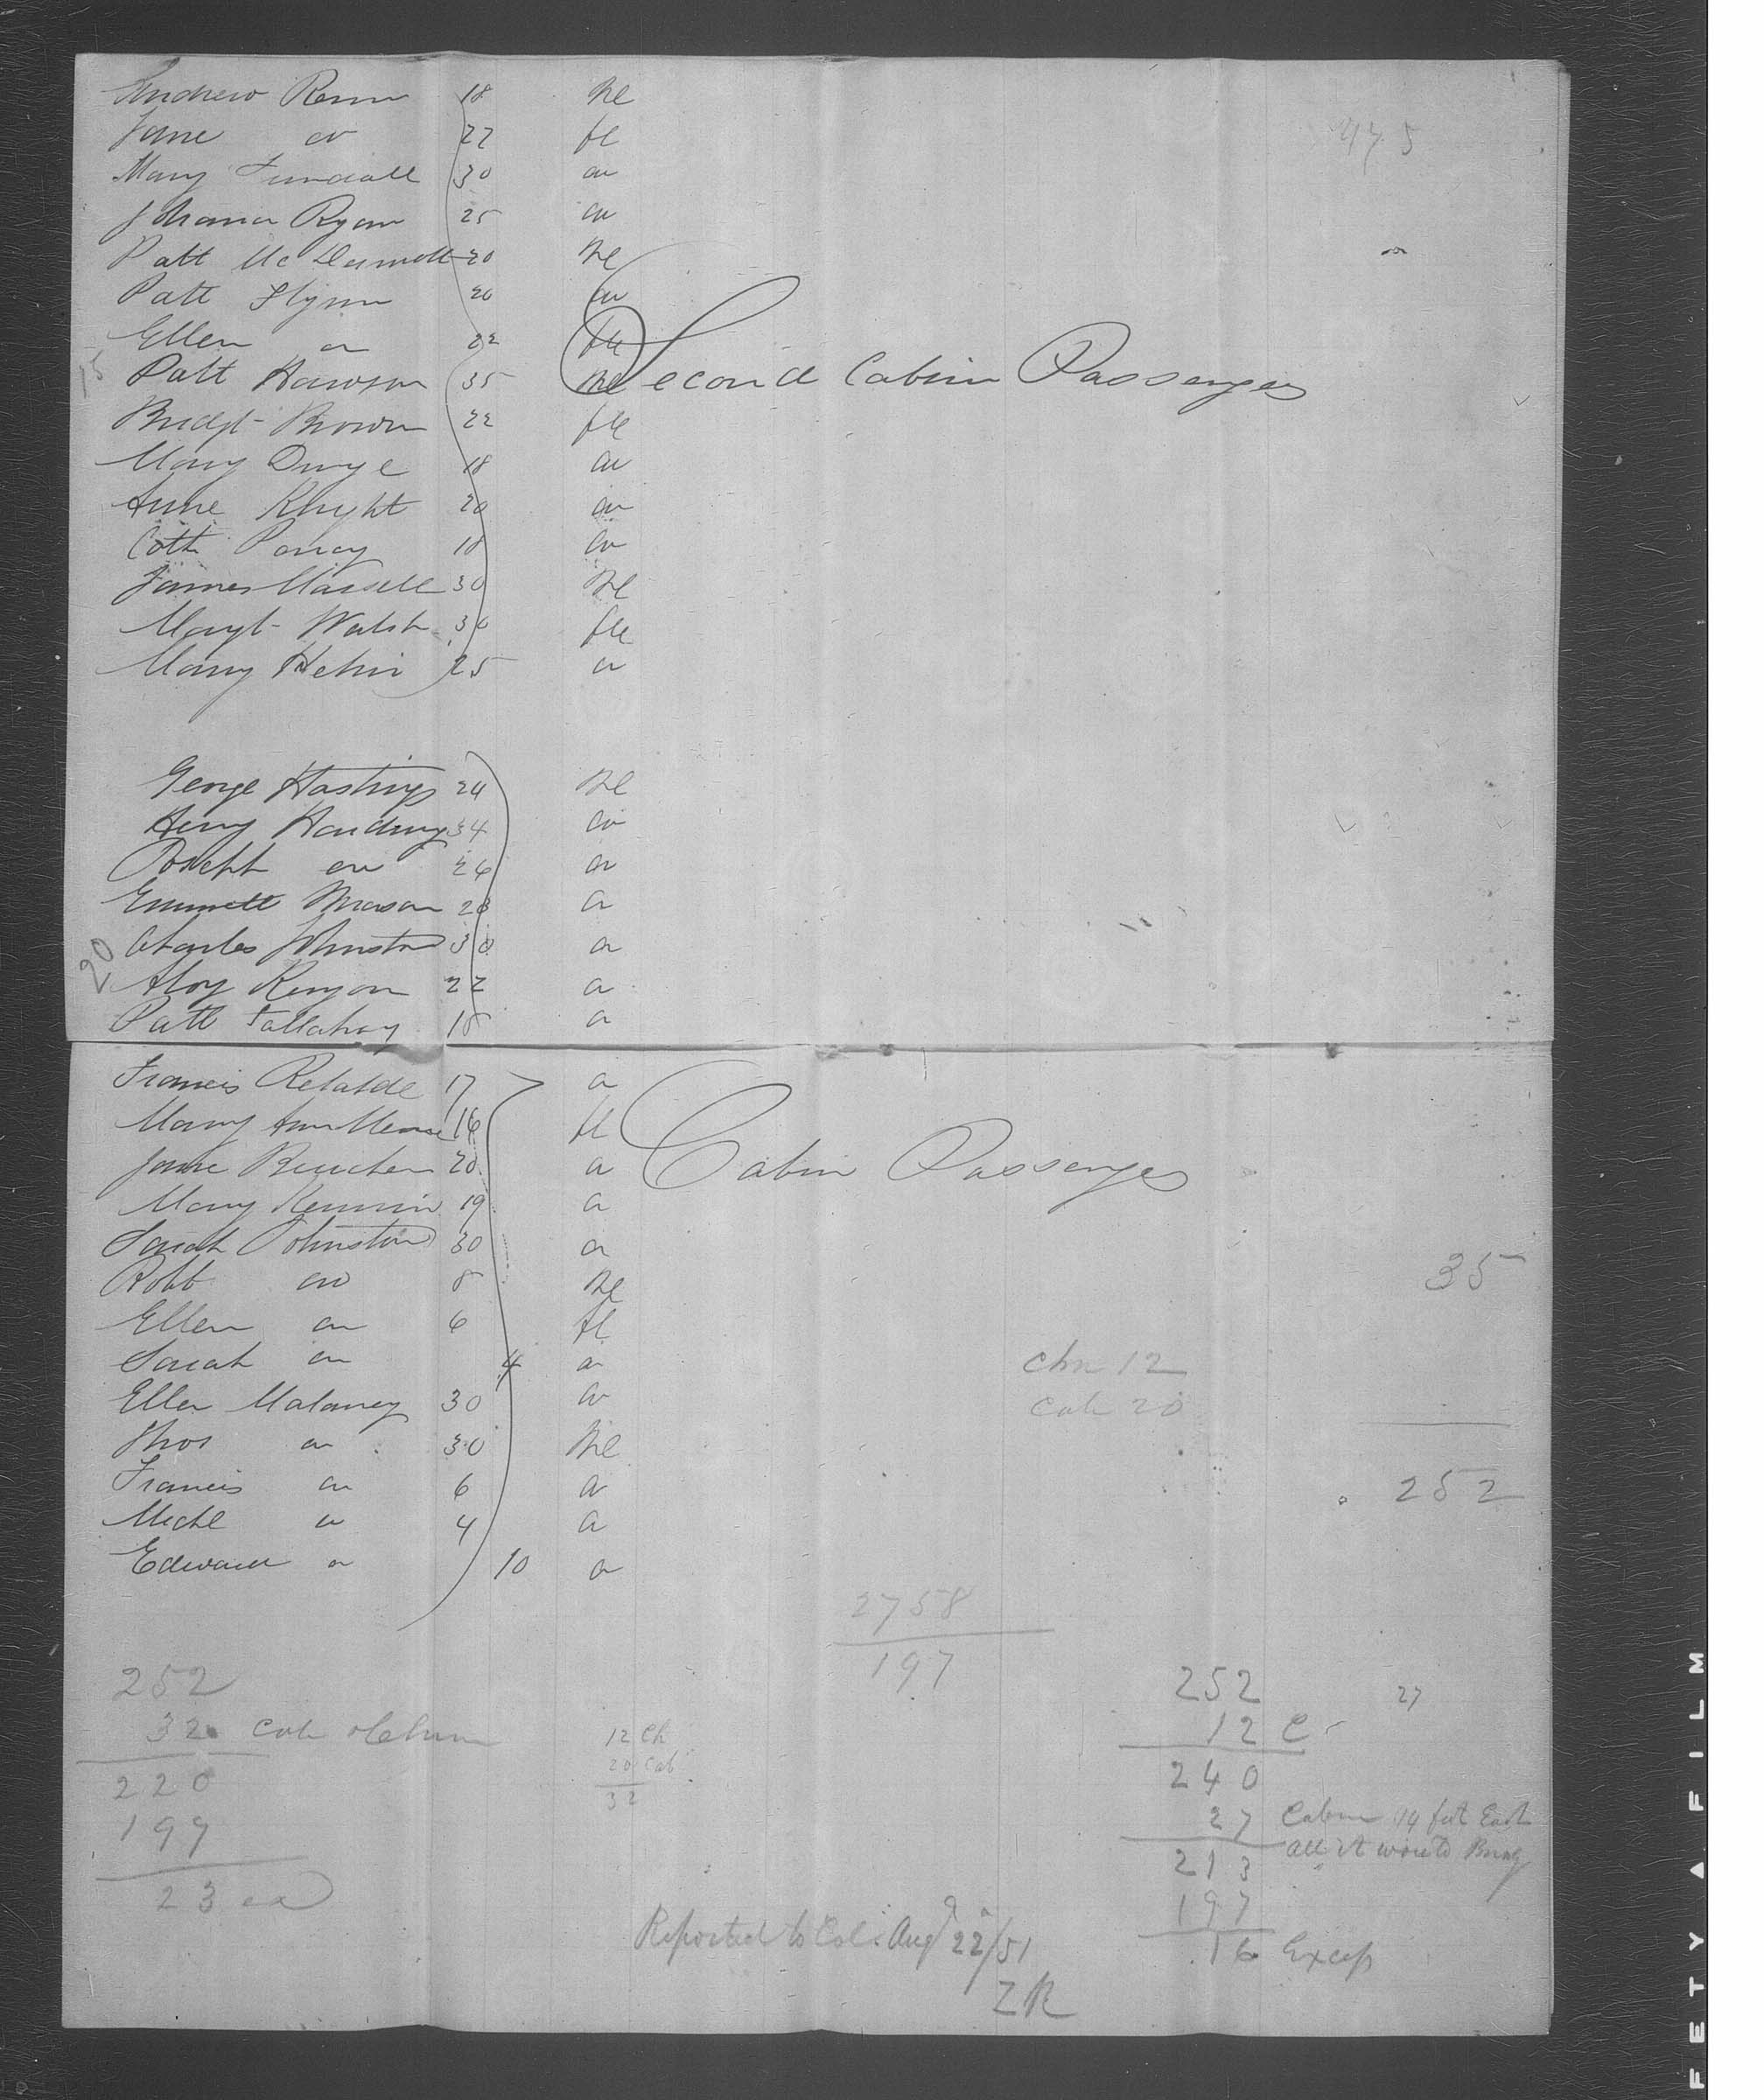 475
Andrew 18 Me
Jane do 22 fe
Mary 30 do
Johanna Ryan 25 do
Patt McDermott 20 Me
Patt Flynn 20 do
Ellen do 22 fe
15
Patt 35 Me Second Cabin Passengers
Bridgt Brown 22 fe
Mary Dwye 18 do
Anne Knight 20 do
Cath 18 do
James 30 Me
Margt Walsh 30 fe
Mary 25 do
George Hastings 24 Me
Henry Harding 34 do
Joseph do 26 do
Emmett Mason 28 do
20
Charles Johnston 30 do
Kenyon 22 do
Patt Fallahay 18 do
Francis 17 do
Mary Ann 16 fe
Cabin Passengers
Jane 20 do
Mary 19 do
Sarah Johnston 30 do
Robt do 8 Me
35
Ellen do 6 fe
Sarah do 4 do
chn 12
Ellen Malaney 30 do
cab 20
Thos do 30 Me
Francis do 6 do
252
Michl do 4 do
Edward do 10 do
2758
197
252
32 cab & chn
220
197
23 ex
12 Ch
20 Cab
32
252
27
12 C
240
27 Cabin 14 feet Each
213 all it would Bring
197
16 Excess
Reported to Col. Aug 22/51
ZR
FETY FILM